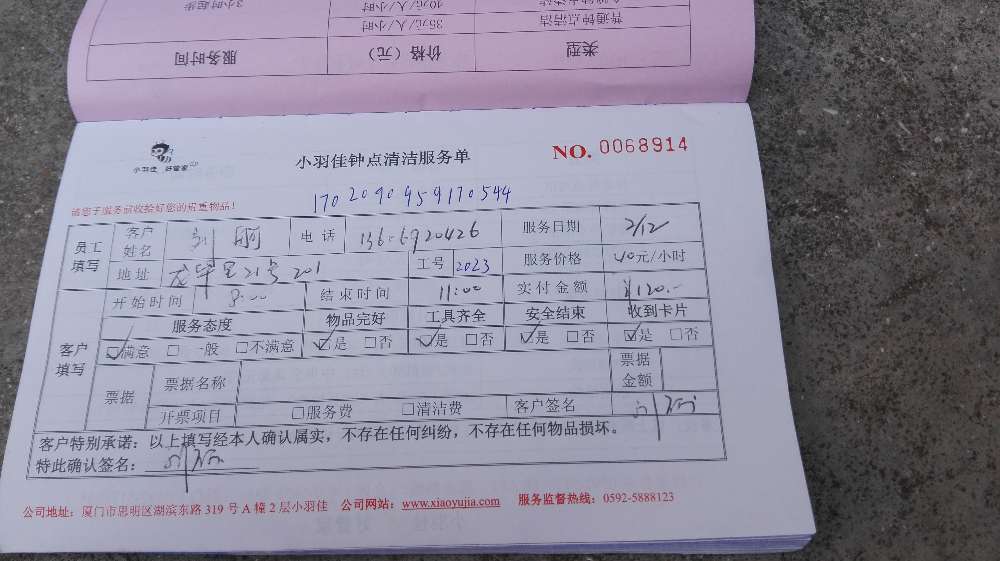 3小时起步
40元/人/小时
35元/人/小时
普通钟点清洁
服务时间
价格（元）
类型
小羽佳 好管家
小羽佳钟点清洁服务单
NO. 0068914
请您于服务前收拾好您的贵重物品！
170 2090459170544
员工填写
客户姓名
电 话
服务日期 2/12
地址 21号201
工号 2023
服务价格 40元/小时
开始时间 8:00
结束时间 11:00
实付金额 ¥120.-
客户填写
服务态度 物品完好 工具齐全 安全结束 收到卡片
☑满意 □一般 □不满意 ☑是 □否 ☑是 □否 ☑是 □否 ☑是 □否
票据
票据名称
票据金额
开票项目 □服务费 □清洁费 客户签名
客户特别承诺：以上填写经本人确认属实，不存在任何纠纷，不存在任何物品损坏。
特此确认签名：
公司地址：厦门市思明区湖滨东路 319 号 A 幢 2 层小羽佳 公司网站：www.xiaoyujia.com 服务监督热线：0592-5888123